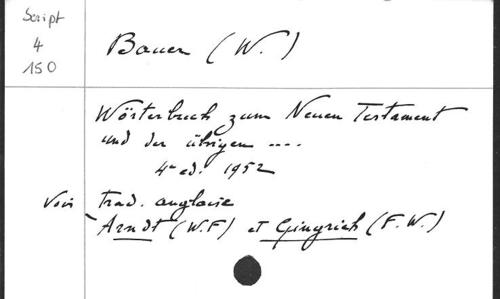 Script
4
150
Bauer (W.)
Wörterbuch zum Neuen Testament
und der übrigen ....
4e ed. 1952
Voir trad. anglaise
Arndt (W.F) et Gingrich (F.W.)